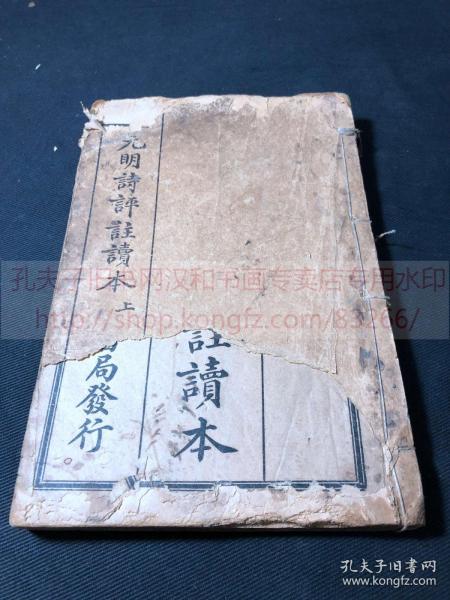 元明詩評註讀本 上
註讀本
局發行
孔夫子旧书网汉和书画专卖店专用水印
http://shop.kongfz.com/83266/
孔夫子旧书网
www.kongfz.com